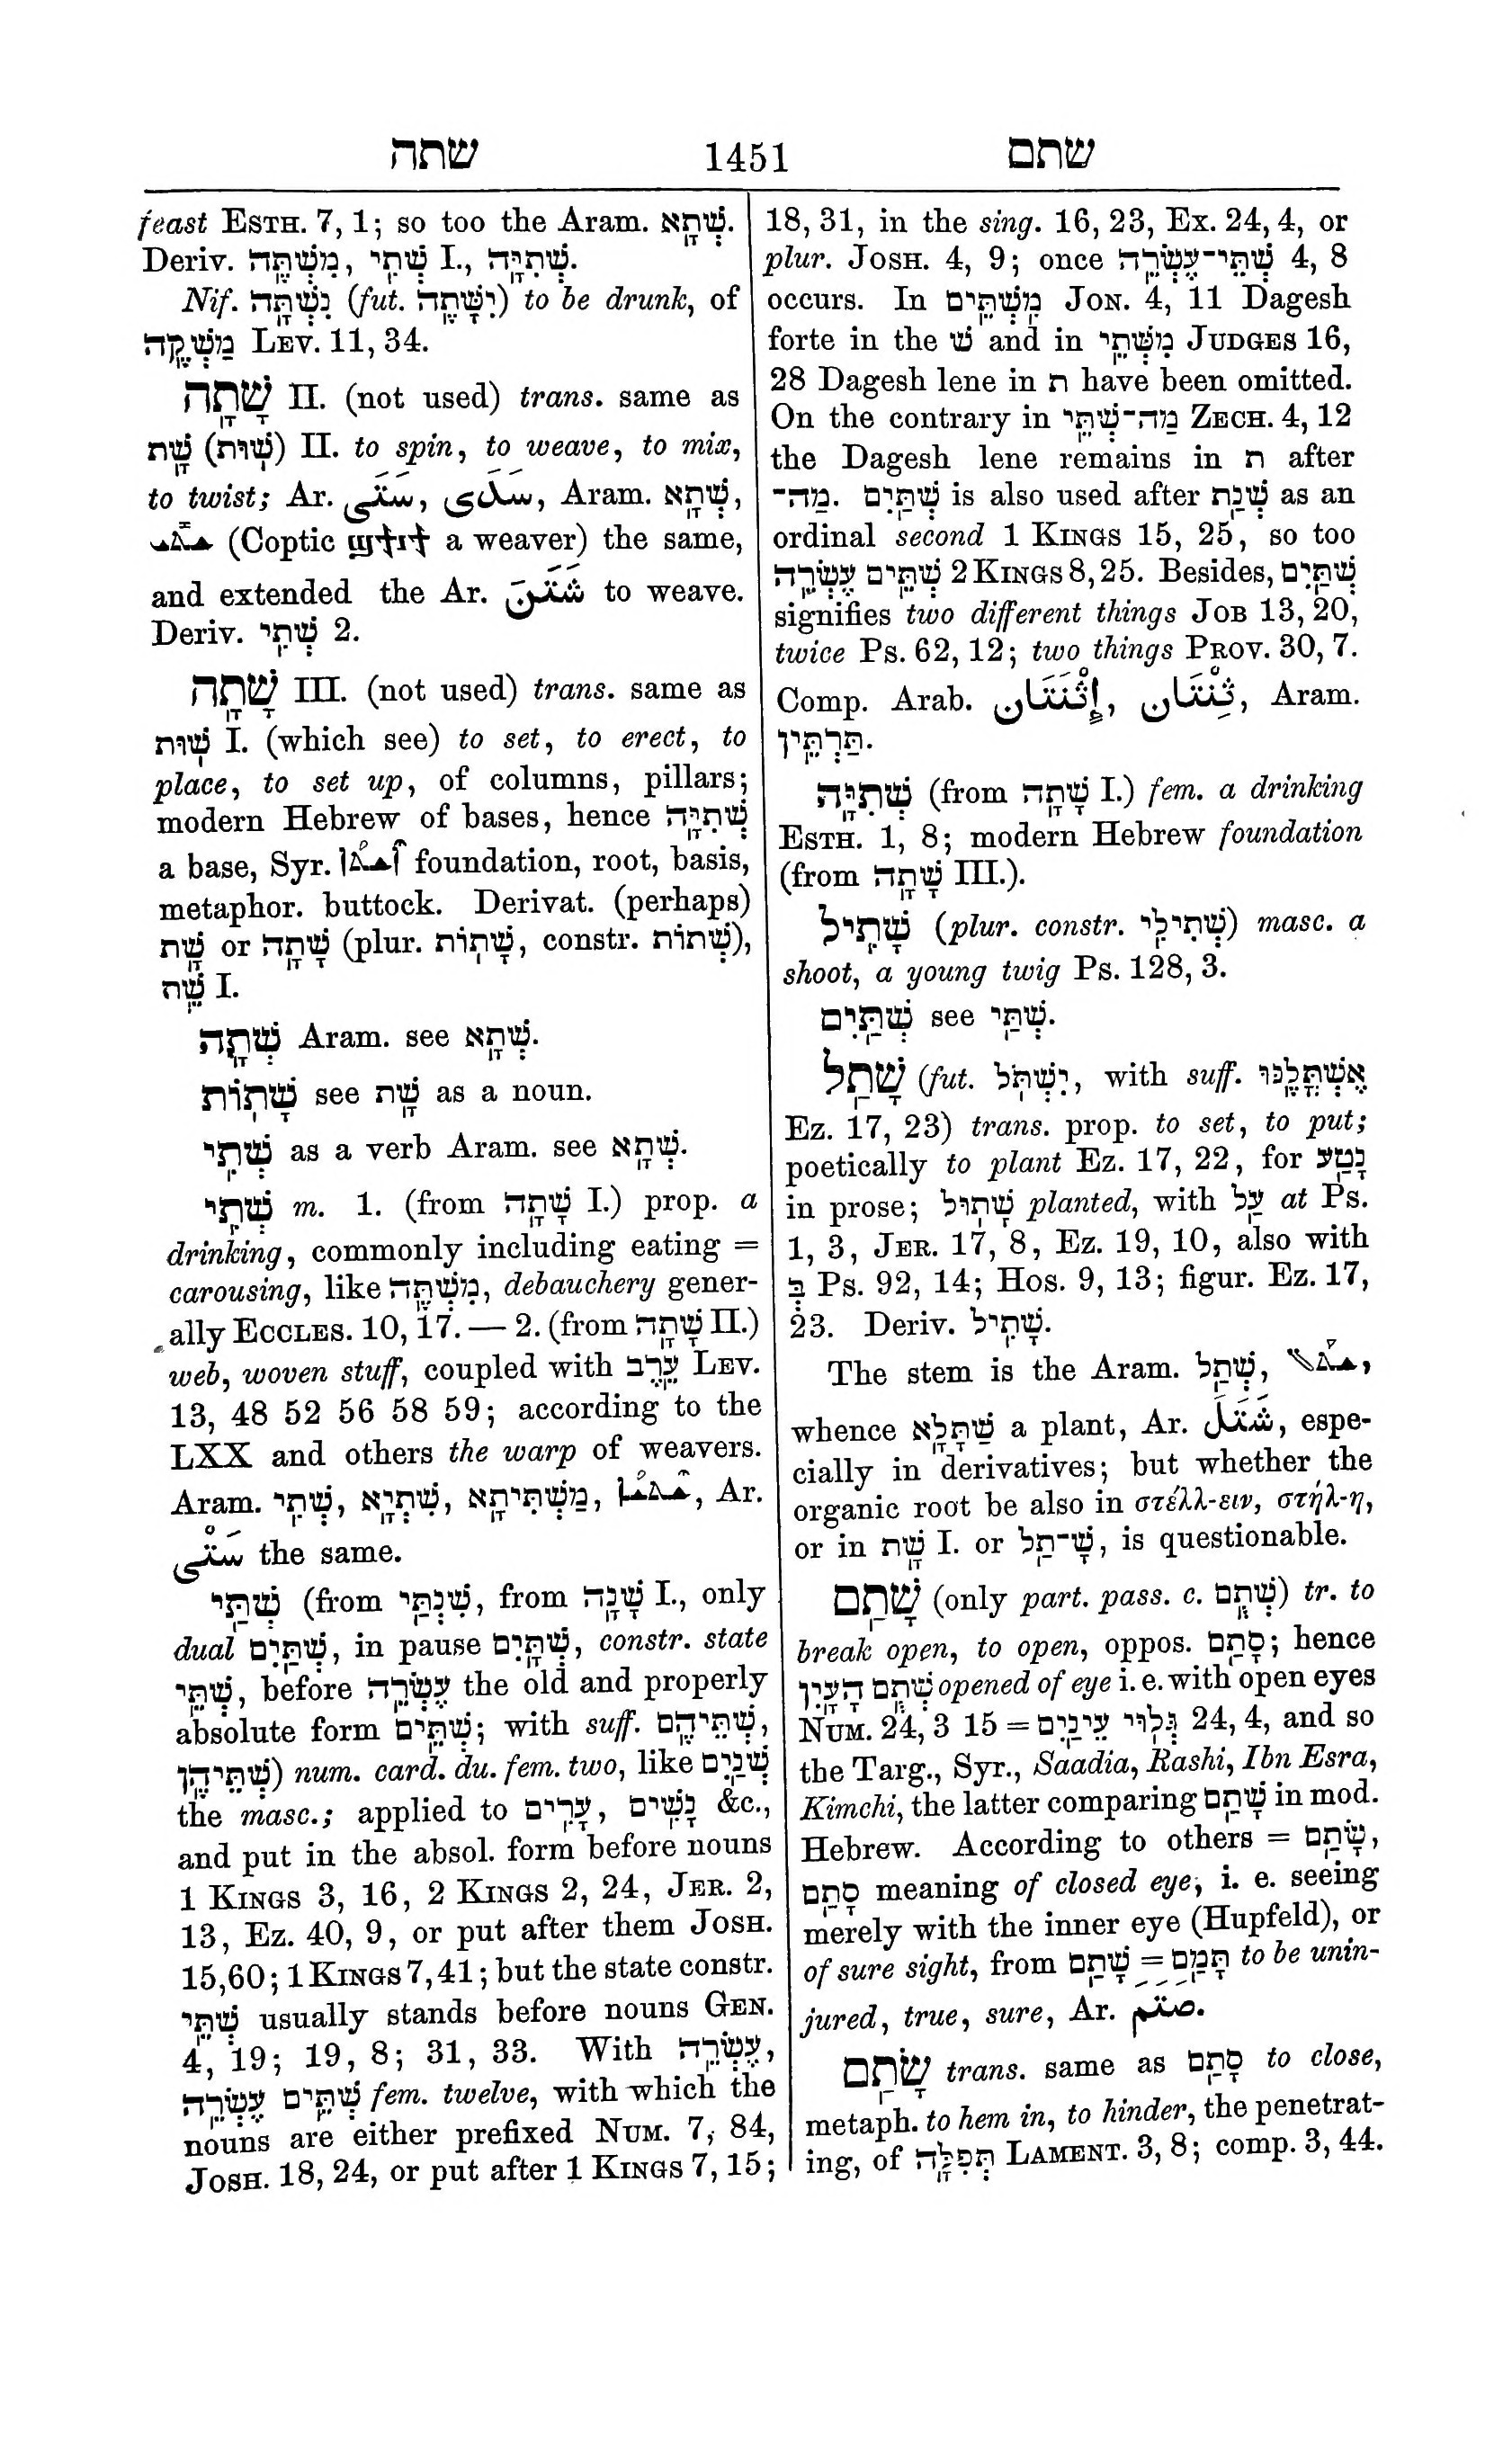 שתה 1451 שתם
feast ESTH. 7, 1; so too the Aram. שְׁתָא.
Deriv. מִשְׁתֶּה, שְׁתִי I., שְׁתִיָּה.
Nif. נִשְׁתָּה (fut. יִשָּׁתֶה) to be drunk, of
מַשְׁקֶה LEV. 11, 34.
שָׁתָה II. (not used) trans. same as
שָׁת (שׁוּת) II. to spin, to weave, to mix,
to twist; Ar. سَتَى, سدى, Aram. שְׁתָא,
(Coptic a weaver) the same,
and extended the Ar. شَتَنَ to weave.
Deriv. שְׁתִי 2.
שָׁתָה III. (not used) trans. same as
שׁוּת I. (which see) to set, to erect, to
place, to set up, of columns, pillars;
modern Hebrew of bases, hence שְׁתִיָּה
a base, Syr. foundation, root, basis,
metaphor. buttock. Derivat. (perhaps)
שָׁת or שָׁתָה (plur. שָׁתוֹת, constr. שְׁתוֹת),
שֵׁת I.
שְׁתָה Aram. see שְׁתָא.
שָׁתוֹת see שָׁת as a noun.
שְׁתִי as a verb Aram. see שְׁתָא.
שְׁתִי m. 1. (from שָׁתָה I.) prop. a
drinking, commonly including eating =
carousing, like מִשְׁתֶּה, debauchery gener-
ally ECCLES. 10, 17. — 2. (from שָׁתָה II.)
web, woven stuff, coupled with עֵרֶב LEV.
13, 48 52 56 58 59; according to the
LXX and others the warp of weavers.
Aram. שְׁתִי, שִׁתְיָא, מַשְׁתִּיתָא, Ar.
سَتْى the same.
שְׁתַּי (from שִׁנְתַּי, from שָׁנָה I., only
dual שְׁתַּיִם, in pause שְׁתָּיִם, constr. state
שְׁתֵּי, before עֶשְׂרֵה the old and properly
absolute form שְׁתֵּים; with suff. שְׁתֵּיהֶם,
שְׁתֵּיהֶן) num. card. du. fem. two, like שְׁנַיִם
the masc.; applied to עָרִים, נָשִׁים &c.,
and put in the absol. form before nouns
1 KINGS 3, 16, 2 KINGS 2, 24, JER. 2,
13, EZ. 40, 9, or put after them JOSH.
15,60; 1 KINGS 7,41; but the state constr.
שְׁתֵּי usually stands before nouns GEN.
4, 19; 19, 8; 31, 33. With עֶשְׂרֵה,
שְׁתֵּים עֶשְׂרֵה fem. twelve, with which the
nouns are either prefixed NUM. 7, 84,
JOSH. 18, 24, or put after 1 KINGS 7, 15;
18, 31, in the sing. 16, 23, EX. 24, 4, or
plur. JOSH. 4, 9; once שְׁתֵּי־עֶשְׂרֵה 4, 8
occurs. In מִשְׁתֵּים JON. 4, 11 Dagesh
forte in the שׁ and in מִשְּׁתֵי JUDGES 16,
28 Dagesh lene in ת have been omitted.
On the contrary in מַה־שְׁתֵּי ZECH. 4, 12
the Dagesh lene remains in ת after
מַה־. שְׁתַּיִם is also used after שְׁנַת as an
ordinal second 1 KINGS 15, 25, so too
שְׁתֵּים עֶשְׂרֵה 2 KINGS 8, 25. Besides, שְׁתַּיִם
signifies two different things JOB 13, 20,
twice PS. 62, 12; two things PROV. 30, 7.
Comp. Arab. إِثْنَتَان, ثِنْتَان, Aram.
תַּרְתֵּין.
שְׁתִיָּה (from שָׁתָה I.) fem. a drinking
ESTH. 1, 8; modern Hebrew foundation
(from שָׁתָה III.).
שָׁתִיל (plur. constr. שְׁתִילֵי) masc. a
shoot, a young twig PS. 128, 3.
שְׁתַּיִם see שְׁתַּי.
שָׁתַל (fut. יִשְׁתֹּל, with suff. אֶשְׁתֳּלֶנּוּ
EZ. 17, 23) trans. prop. to set, to put;
poetically to plant EZ. 17, 22, for נָטַע
in prose; שָׁתוּל planted, with עַל at PS.
1, 3, JER. 17, 8, EZ. 19, 10, also with
בְּ PS. 92, 14; HOS. 9, 13; figur. EZ. 17,
23. Deriv. שָׁתִיל.
The stem is the Aram. שְׁתַל,
whence שַׁתָּלָא a plant, Ar. شَتَلَ, espe-
cially in derivatives; but whether the
organic root be also in στέλλ-ειν, στήλ-η,
or in שָׁת I. or שָׁ־תַל, is questionable.
שָׁתַם (only part. pass. c. שְׁתֻם) tr. to
break open, to open, oppos. סָתַם; hence
שְׁתֻם הָעָיִן opened of eye i. e. with open eyes
NUM. 24, 3 15 = גְּלוּי עֵינַיִם 24, 4, and so
the Targ., Syr., Saadia, Rashi, Ibn Esra,
Kimchi, the latter comparing שָׁתַם in mod.
Hebrew. According to others = שָׂתַם,
סָתַם meaning of closed eye, i. e. seeing
merely with the inner eye (Hupfeld), or
of sure sight, from שָׁתַם = תָּמַם to be unin-
jured, true, sure, Ar. صتم.
שָׂתַם trans. same as סָתַם to close,
metaph. to hem in, to hinder, the penetrat-
ing, of תְּפִלָּה LAMENT. 3, 8; comp. 3, 44.